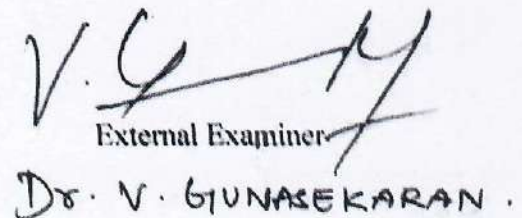 External Examiner
Dr. V. GUNASEKARAN.